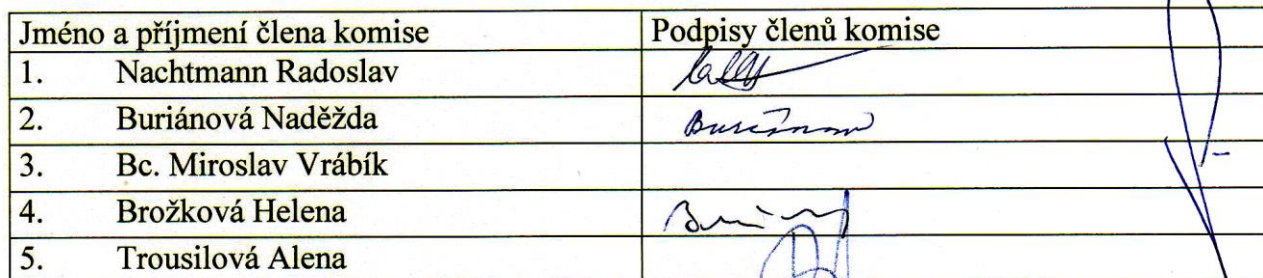 Jméno a příjmení člena komise Podpisy členů komise
1. Nachtmann Radoslav
2. Buriánová Naděžda
3. Bc. Miroslav Vrábík
4. Brožková Helena
5. Trousilová Alena